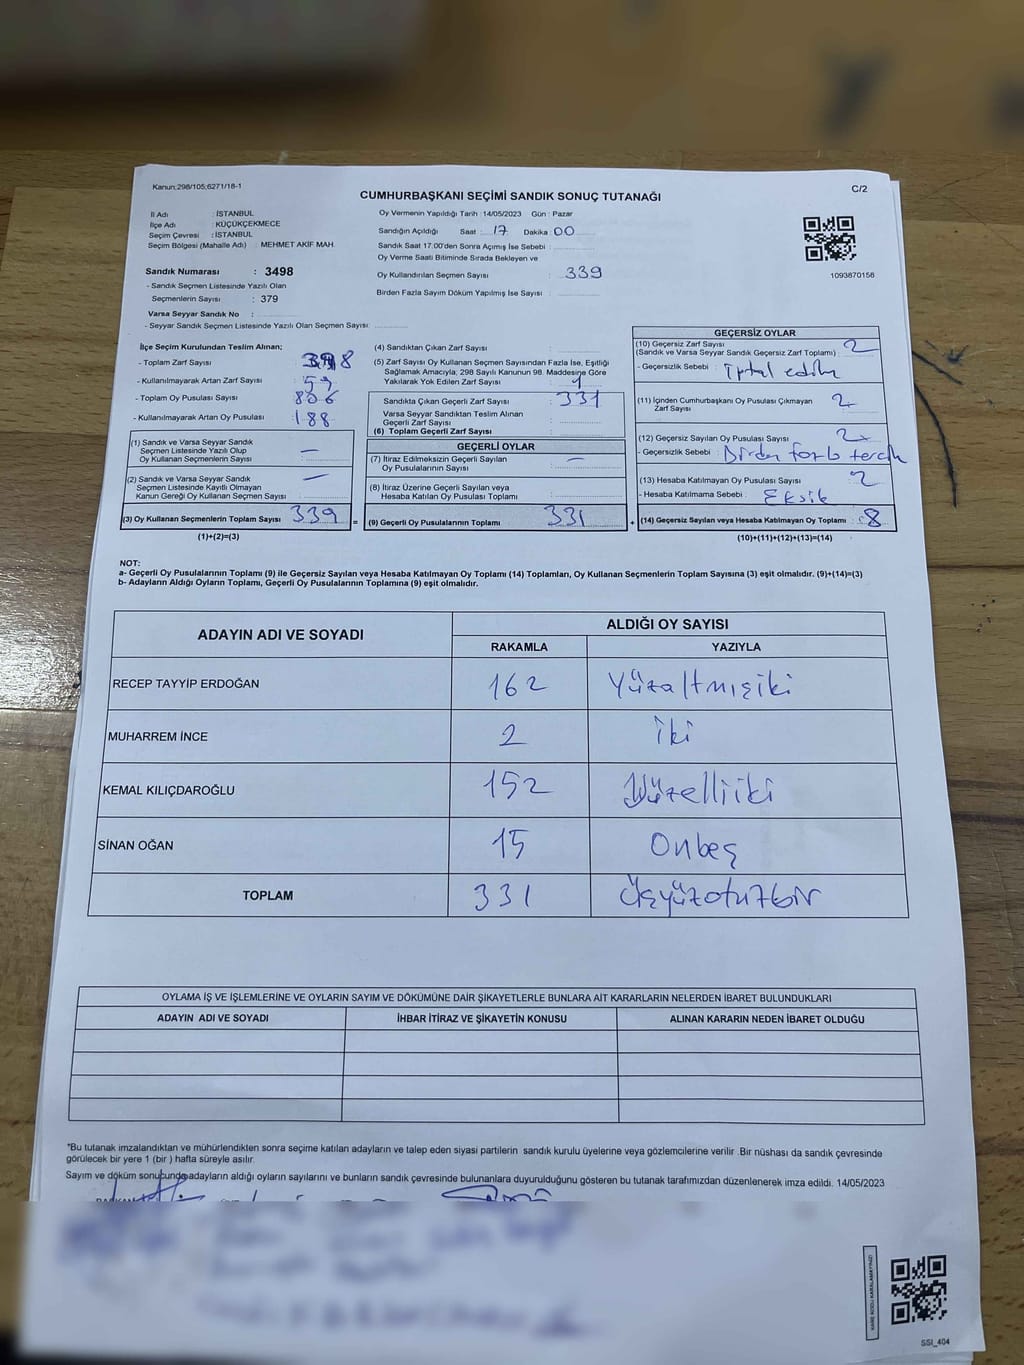 Kanun;298/105;6271/18-1
C/2
CUMHURBAŞKANI SEÇİMİ SANDIK SONUÇ TUTANAĞI
İl Adı : İSTANBUL
İlçe Adı : KÜÇÜKÇEKMECE
Seçim Çevresi : İSTANBUL
Seçim Bölgesi (Mahalle Adı) : MEHMET AKİF MAH.
Sandık Numarası : 3498
- Sandık Seçmen Listesinde Yazılı Olan
Seçmenlerin Sayısı : 379
Varsa Seyyar Sandık No :
- Seyyar Sandık Seçmen Listesinde Yazılı Olan Seçmen Sayısı:
Oy Vermenin Yapıldığı Tarih : 14/05/2023 Gün : Pazar
Sandığın Açıldığı Saat : 17 Dakika 00
Sandık Saat 17.00'den Sonra Açımış İse Sebebi :
Oy Verme Saati Bitiminde Sırada Bekleyen ve
Oy Kullandırılan Seçmen Sayısı : 339
Birden Fazla Sayım Döküm Yapılmış İse Sayısı :
1093870156
İlçe Seçim Kurulundan Teslim Alınan;
- Toplam Zarf Sayısı
- Kullanılmayarak Artan Zarf Sayısı : 59
- Toplam Oy Pusulası Sayısı
- Kullanılmayarak Artan Oy Pusulası : 188
(1) Sandık ve Varsa Seyyar Sandık
Seçmen Listesinde Yazılı Olup
Oy Kullanan Seçmenlerin Sayısı : —
(2) Sandık ve Varsa Seyyar Sandık
Seçmen Listesinde Kayıtlı Olmayan
Kanun Gereği Oy Kullanan Seçmen Sayısı : —
(3) Oy Kullanan Seçmenlerin Toplam Sayısı 339 =
(1)+(2)=(3)
(4) Sandıktan Çıkan Zarf Sayısı :
(5) Zarf Sayısı Oy Kullanan Seçmen Sayısından Fazla İse, Eşitliği
Sağlamak Amacıyla; 298 Sayılı Kanunun 98. Maddesine Göre
Yakılarak Yok Edilen Zarf Sayısı :
Sandıkta Çıkan Geçerli Zarf Sayısı : 331
Varsa Seyyar Sandıktan Teslim Alınan
Geçerli Zarf Sayısı :
(6) Toplam Geçerli Zarf Sayısı :
GEÇERLİ OYLAR
(7) İtiraz Edilmeksizin Geçerli Sayılan
Oy Pusulalarının Sayısı : —
(8) İtiraz Üzerine Geçerli Sayılan veya
Hesaba Katılan Oy Pusulası Toplamı :
(9) Geçerli Oy Pusulalarının Toplamı 331 +
GEÇERSİZ OYLAR
(10) Geçersiz Zarf Sayısı : 2
(Sandık ve Varsa Seyyar Sandık Geçersiz Zarf Toplamı)
- Geçersizlik Sebebi : iptal edilen
(11) İçinden Cumhurbaşkanı Oy Pusulası Çıkmayan
Zarf Sayısı : 2
(12) Geçersiz Sayılan Oy Pusulası Sayısı : 2
- Geçersizlik Sebebi : Birden fazla tercih
(13) Hesaba Katılmayan Oy Pusulası Sayısı : 2
- Hesaba Katılmama Sebebi : Eksik
(14) Geçersiz Sayılan veya Hesaba Katılmayan Oy Toplamı : 8
(10)+(11)+(12)+(13)=(14)
NOT:
a- Geçerli Oy Pusulalarının Toplamı (9) ile Geçersiz Sayılan veya Hesaba Katılmayan Oy Toplamı (14) Toplamları, Oy Kullanan Seçmenlerin Toplam Sayısına (3) eşit olmalıdır. (9)+(14)=(3)
b- Adayların Aldığı Oyların Toplamı, Geçerli Oy Pusulalarının Toplamına (9) eşit olmalıdır.
ADAYIN ADI VE SOYADI
ALDIĞI OY SAYISI
RAKAMLA YAZIYLA
RECEP TAYYİP ERDOĞAN 162 Yüzaltmışiki
MUHARREM İNCE 2 İki
KEMAL KILIÇDAROĞLU 152 Yüzelliiki
SİNAN OĞAN 15 Onbeş
TOPLAM 331 Üçyüzotuzbir
OYLAMA İŞ VE İŞLEMLERİNE VE OYLARIN SAYIM VE DÖKÜMÜNE DAİR ŞİKAYETLERLE BUNLARA AİT KARARLARIN NELERDEN İBARET BULUNDUKLARI
ADAYIN ADI VE SOYADI İHBAR İTİRAZ VE ŞİKAYETİN KONUSU ALINAN KARARIN NEDEN İBARET OLDUĞU
*Bu tutanak imzalandıktan ve mühürlendikten sonra seçime katılan adayların ve talep eden siyasi partilerin sandık kurulu üyelerine veya gözlemcilerine verilir .Bir nüshası da sandık çevresinde
görülecek bir yere 1 (bir ) hafta süreyle asılır.
Sayım ve döküm sonucunda adayların aldığı oyların sayılarını ve bunların sandık çevresinde bulunanlara duyurulduğunu gösteren bu tutanak tarafımızdan düzenlenerek imza edildi. 14/05/2023
KARE KODU KARALAMAYINIZ!
SSI_404